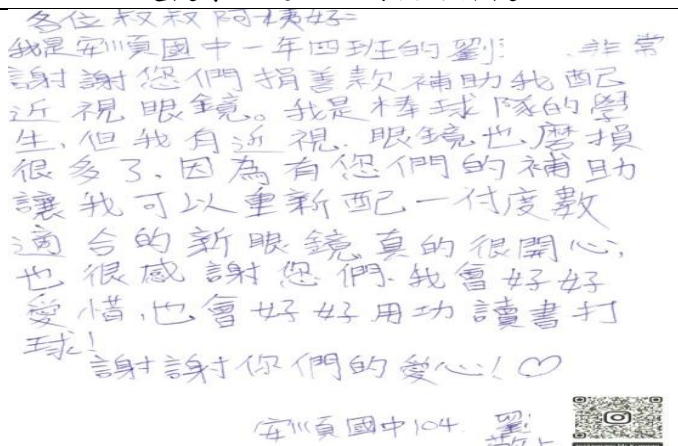 各位叔叔阿姨好=
我是安順國中一年四班的劉 非常
謝謝您們捐善款補助我配
近視眼鏡。我是棒球隊的學
生,但我有近視.眼鏡也磨損
很多了、因為有您們的補助
讓我可以重新配一付度數
適合的新眼鏡真的很開心,
也很感謝您們.我會好好
愛惜,也會好好用功讀書打
球!
謝謝你們的愛心!♡
安順國中104. 劉